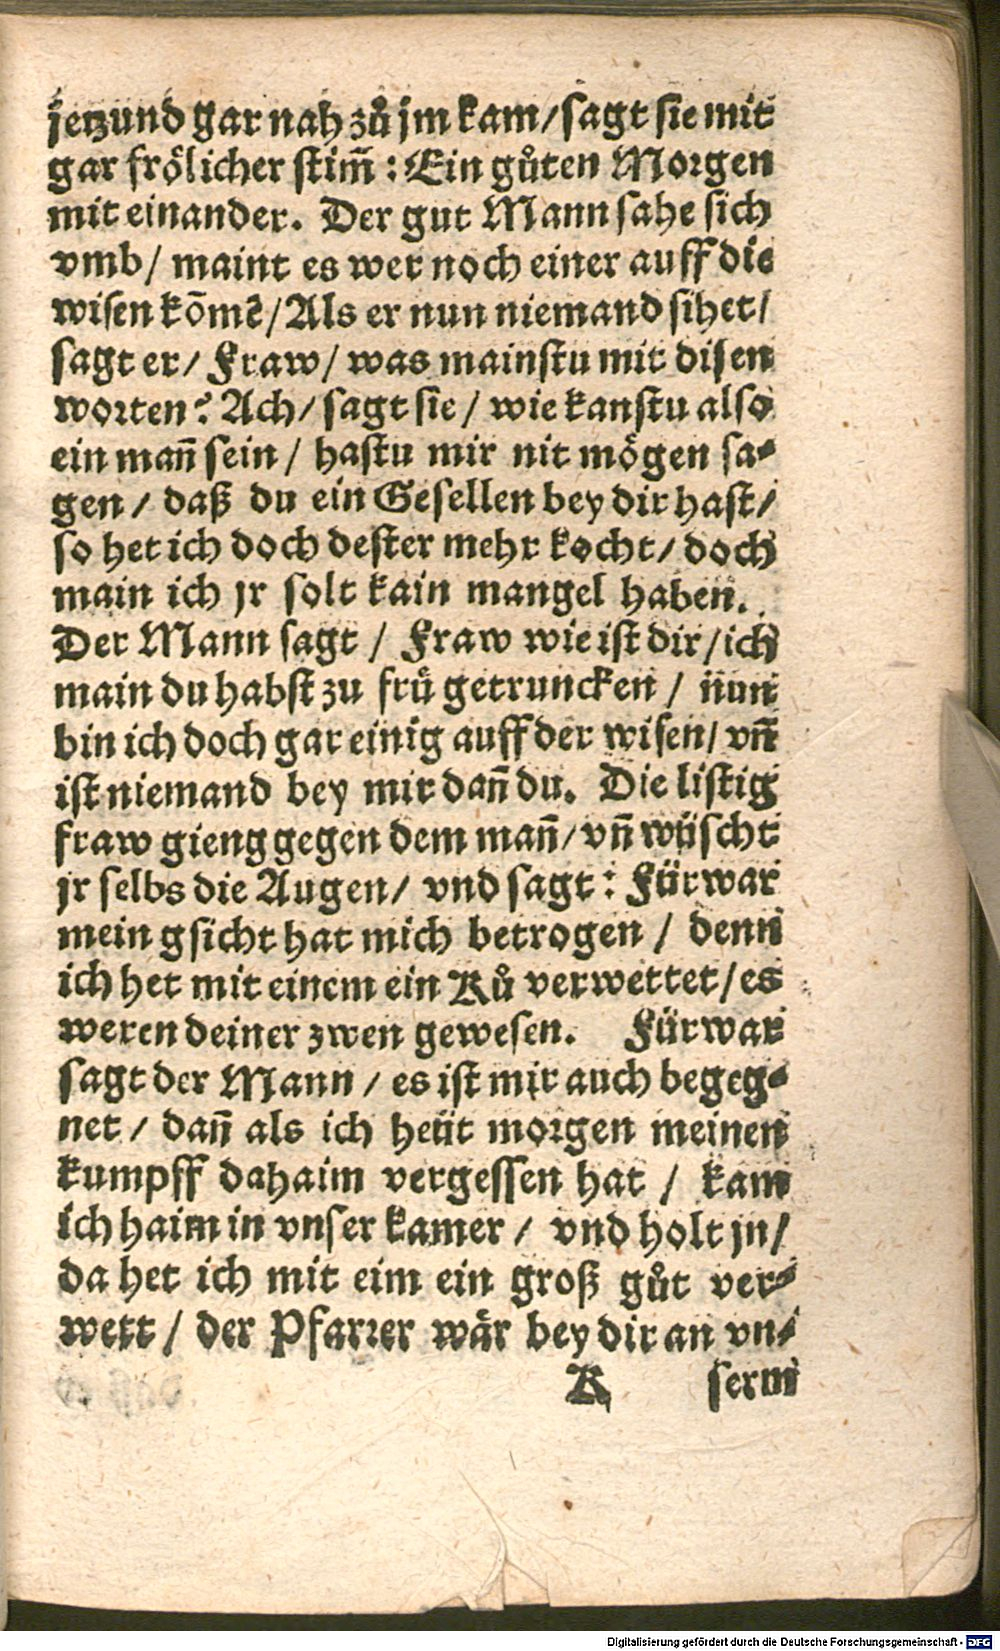 jetzund gar nah zů jm kam/ sagt sie mit
gar frölicher stim̃ : Ein gůten Morgen
mit einander. Der gut Mann sahe sich
vmb/ maint es wer noch einer auff die
wisen kõmẽ/ Als er nun niemand sihet/
sagt er/ Fraw/ was mainstu mit disen
worten? Ach/ sagt sie/ wie kanstu also
ein mañ sein/ hastu mir nit mögen sa-
gen/ daß du ein Gesellen bey dir hast/
so het ich doch dester mehr kocht/ doch
main ich jr solt kain mangel haben.
Der Mann sagt/ Fraw wie ist dir/ ich
main du habst zu frü getruncken/ nun
bin ich doch gar einig auff der wisen/ vñ
ist niemand bey mir dañ du. Die listig
fraw gieng gegen dem mañ/ vñ wüscht
jr selbs die Augen/ vnd sagt : Fürwar
mein gsicht hat mich betrogen/ denn
ich het mit einem ein Ků verwettet/ es
weren deiner zwen gewesen. Fürwar
sagt der Mann/ es ist mir auch begeg-
net/ dañ als ich heüt morgen meinen
kumpff dahaim vergessen hat/ kam
ich haim in vnser kamer/ vnd holt jn/
da het ich mit eim ein groß gůt ver-
wett/ der Pfarrer wär bey dir an vn-
K serm
Digitalisierung gefördert durch die Deutsche Forschungsgemeinschaft - DFG